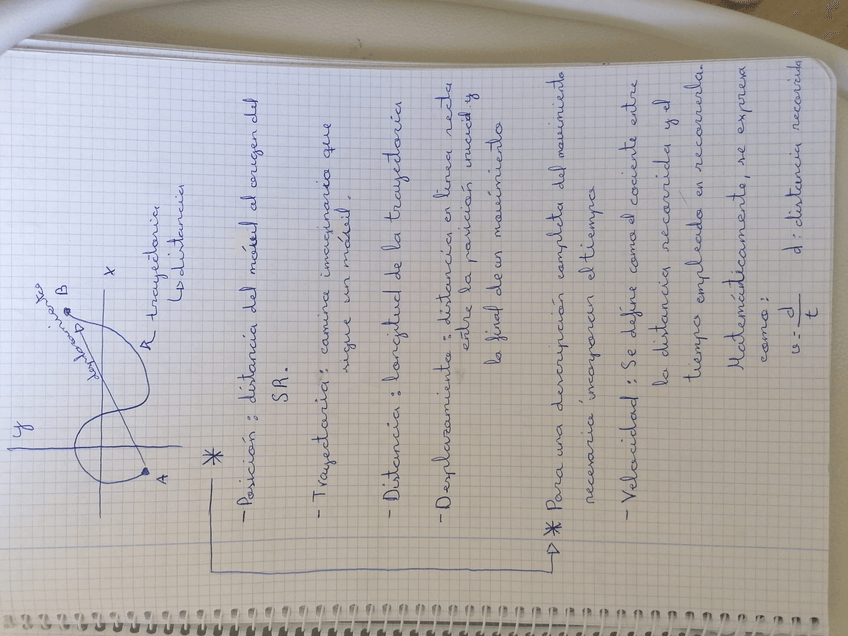 y
x
A
B
desplazamiento
trayectoria
↳ distancia
*
- Posición : distancia del móvil al origen del
SR.
- Trayectoria : camino imaginario que
sigue un móvil.
- Distancia : longitud de la trayectoria
- Desplazamiento : distancia en línea recta
entre la posición inicial y
la final de un movimiento
* Para una descripción completa del movimiento
necesario incorporar el tiempo
- Velocidad : Se define como el cociente entre
la distancia recorrida y el
tiempo empleado en recorrerla.
Matemáticamente, se expresa
como :
v = d / t d : distancia recorrida